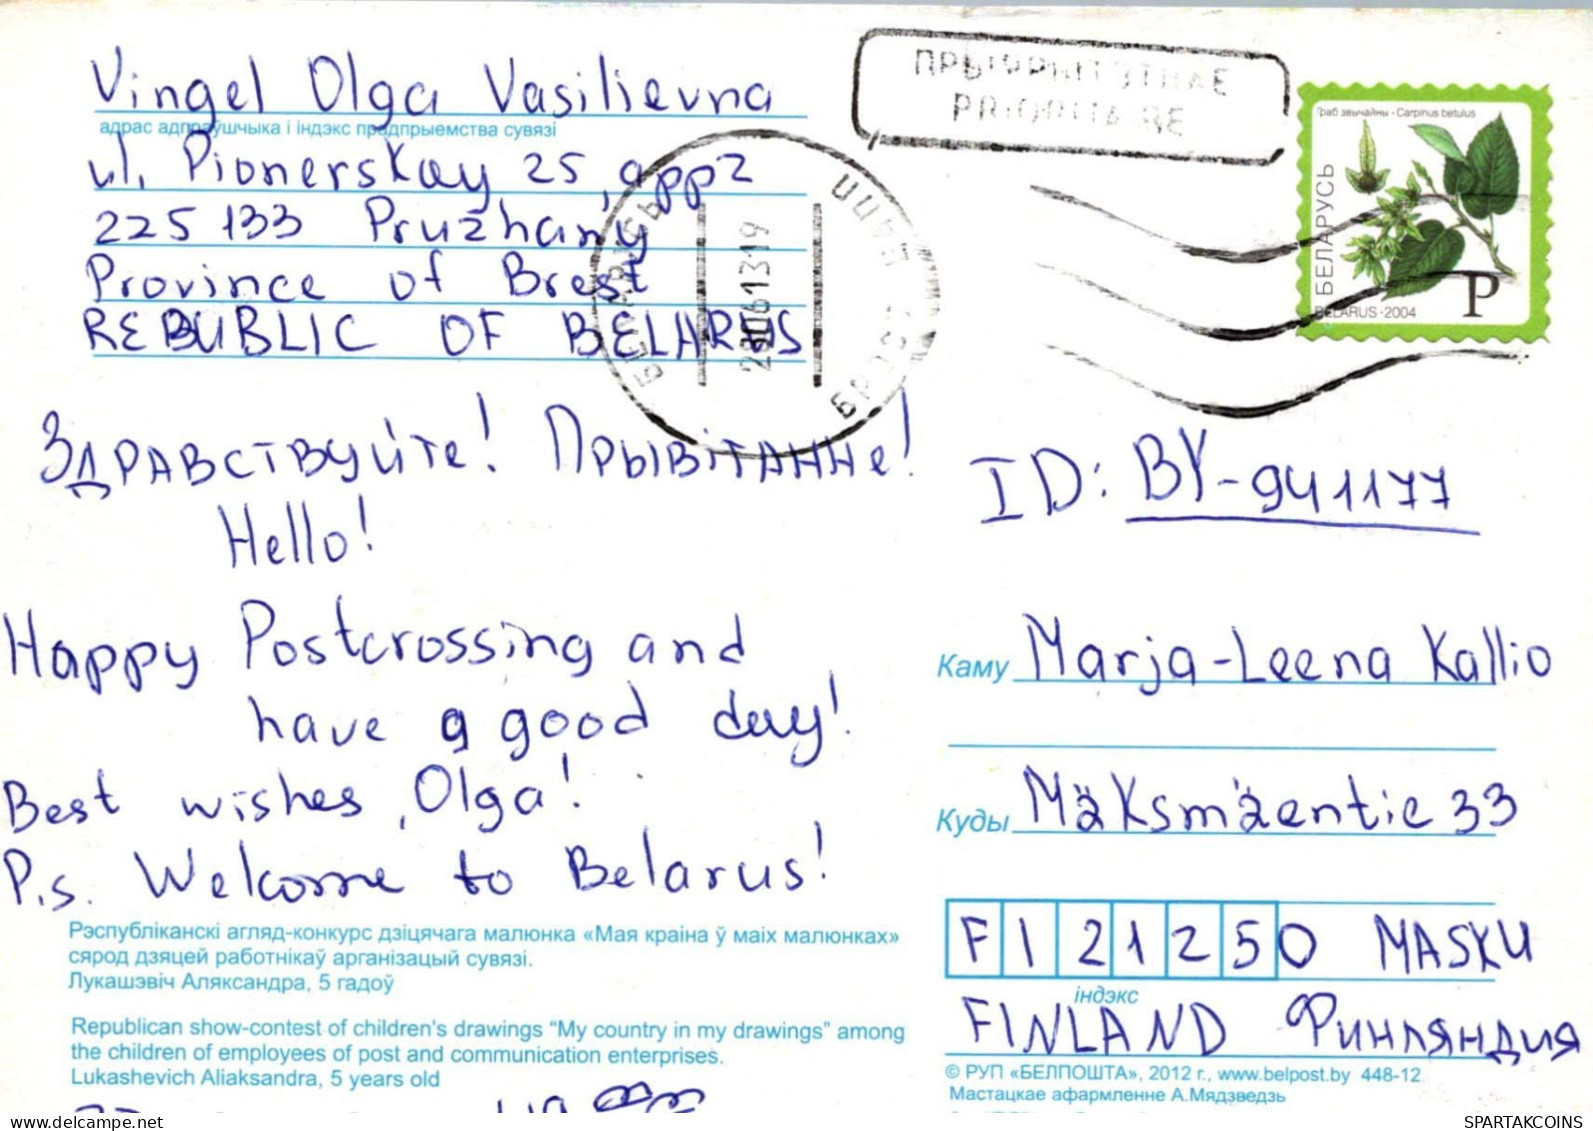 Vingel Olga Vasilievna
адрас адпраўшчыка і індэкс прадпрыемства сувязі
ul. Pionerskay 25, app2
225133 Pruzhany
Province of Brest
REBUBLIC OF BELARUS
ПРЫЯРЫТЭТНАЕ
PRIORITAIRE
Граб звычайны - Carpinus betulus
БЕЛАРУСЬ
P
BELARUS · 2004
БЕЛАРУСЬ
280613 19
БРЭСТ
ЗДРАВСТВУЙТе! ПРЫВіТАННе!
Hello!
ID: BY-941177
Happy Postcrossing and
have a good day!
Best wishes, Olga!
P.s. Welcome to Belarus!
Каму Marja-Leena Kallio
Куды Mäksmäentie 33
FI 21250 MASKU
індэкс
FINLAND ФИНЛЯНДИЯ
Рэспубліканскі агляд-конкурс дзіцячага малюнка «Мая краіна ў маіх малюнках»
сярод дзяцей работнікаў арганізацый сувязі.
Лукашэвіч Аляксандра, 5 гадоў
Republican show-contest of children's drawings "My country in my drawings" among
the children of employees of post and communication enterprises.
Lukashevich Aliaksandra, 5 years old
© РУП «БЕЛПОШТА», 2012 г., www.belpost.by 448-12
Мастацкае афармленне А.Мядзведзь
delcampe.net
SPARTAKCOINS